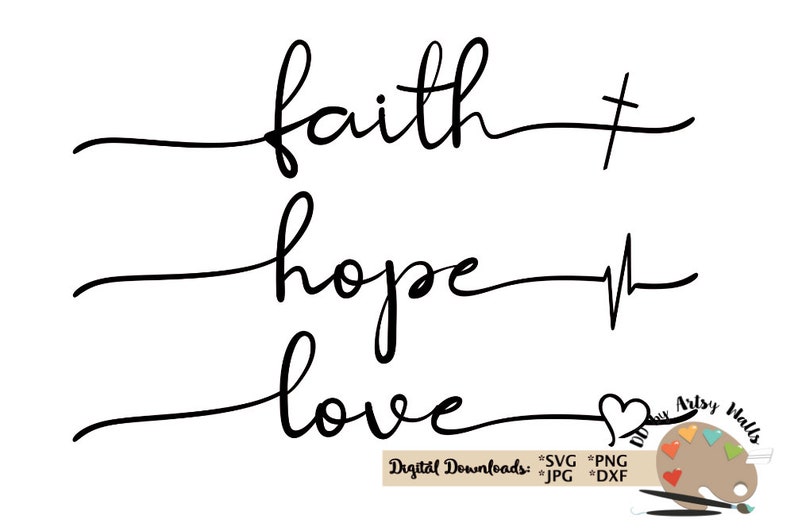 faith
hope
love
DD by Artsy Walls
Digital Downloads: *SVG *PNG
*JPG *DXF